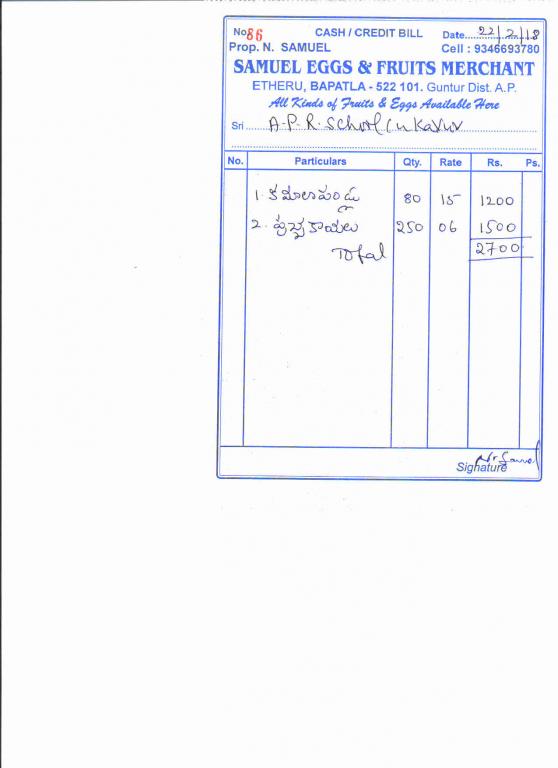 No 86 CASH / CREDIT BILL Date 22/2/18
Prop. N. SAMUEL Cell : 9346693780
SAMUEL EGGS & FRUITS MERCHANT
ETHERU, BAPATLA - 522 101. Guntur Dist. A.P.
All Kinds of Fruits & Eggs Available Here
Sri A.P.R. School
No. Particulars Qty. Rate Rs. Ps.
1. కమలాపండ్లు 80 15 1200
2. పుచ్చకాయలు 250 06 1500
Total 2700
Signature